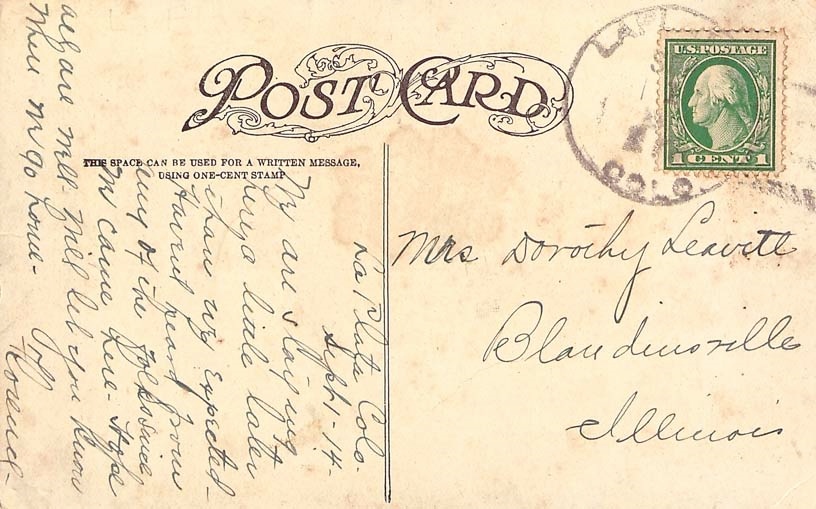 POST CARD
THIS SPACE CAN BE USED FOR A WRITTEN MESSAGE,
USING ONE-CENT STAMP
La Plata Colo.
Sept-1-14-
We are staying
here a little later
than we expected-
Havent heard from
any of the folks since
we came here- Hope
all are well- Will let you know
when we go home-
U.S. POSTAGE
1 CENT 1
COLO.
Mrs Dorothy Leavitt
Blandinsville
Illinois